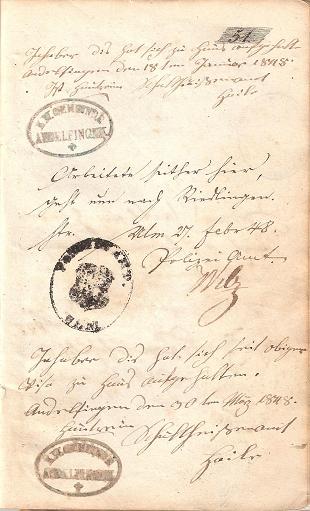 51.
Inhaber dis hat sich zu Haus aufgehalten
Andelfingen den 18 ten Januar 1848.
Schultheißenamt
Haile
K.W. GEMEINDE
ANDELFINGEN
Arbeitete seither hier,
geht nun nach Riedlingen.
Ulm 27. Febr 48.
Polizei Amt.
Welz
POLIZEI AMT.
ULM
Inhaber dis hat sich seit obiger
Visa zu Haus aufgehalten.
Andelfingen den 30 ten Merz 1848.
Schultheißenamt
Haile
K.W. GEMEINDE
ANDELFINGEN